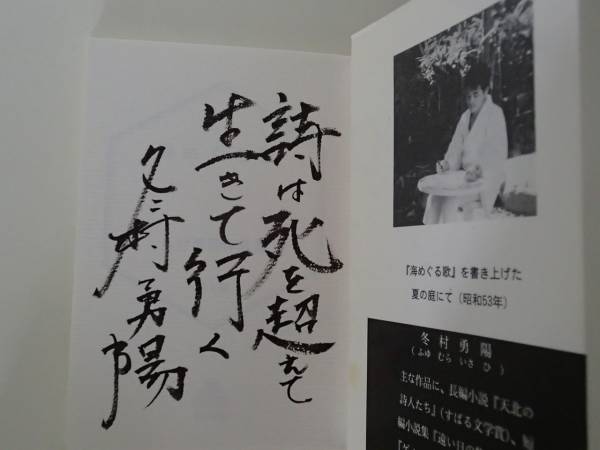 詩は死を超えて
生きて行く
冬村勇陽
『海めぐる歌』を書き上げた
夏の庭にて（昭和53年）
冬村勇陽
（ふゆむらいさひ）
主な作品に、長編小説『天北の
詩人たち』（すばる文学賞）、短
編小説集『遠い日の